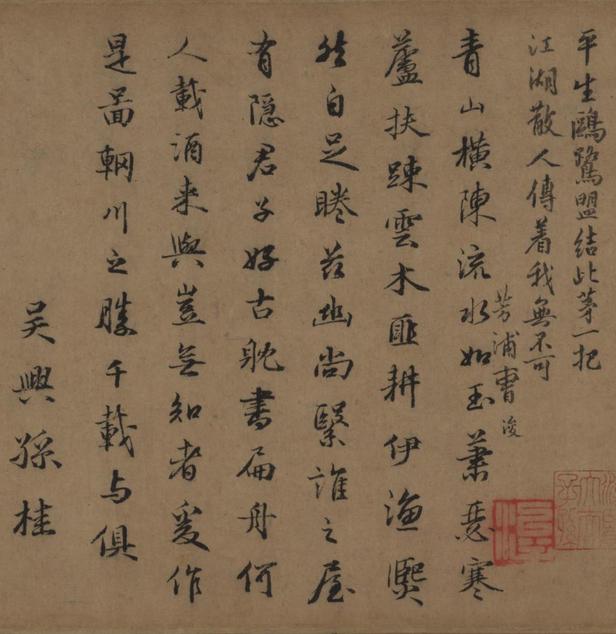 平生鷗鷺盟結此茅一把
江湖散人傳着我無不可
芳浦曹浚
青山橫陳流水如玉蕭瑟寒
蘆扶踈雲木匪耕伊漁熙
然自足睠茲幽尚繄誰之屋
有隱君子好古耽書扁舟何
人載酒来與豈無知者爰作
是啚輞川之勝千載与俱
吴興孫桂